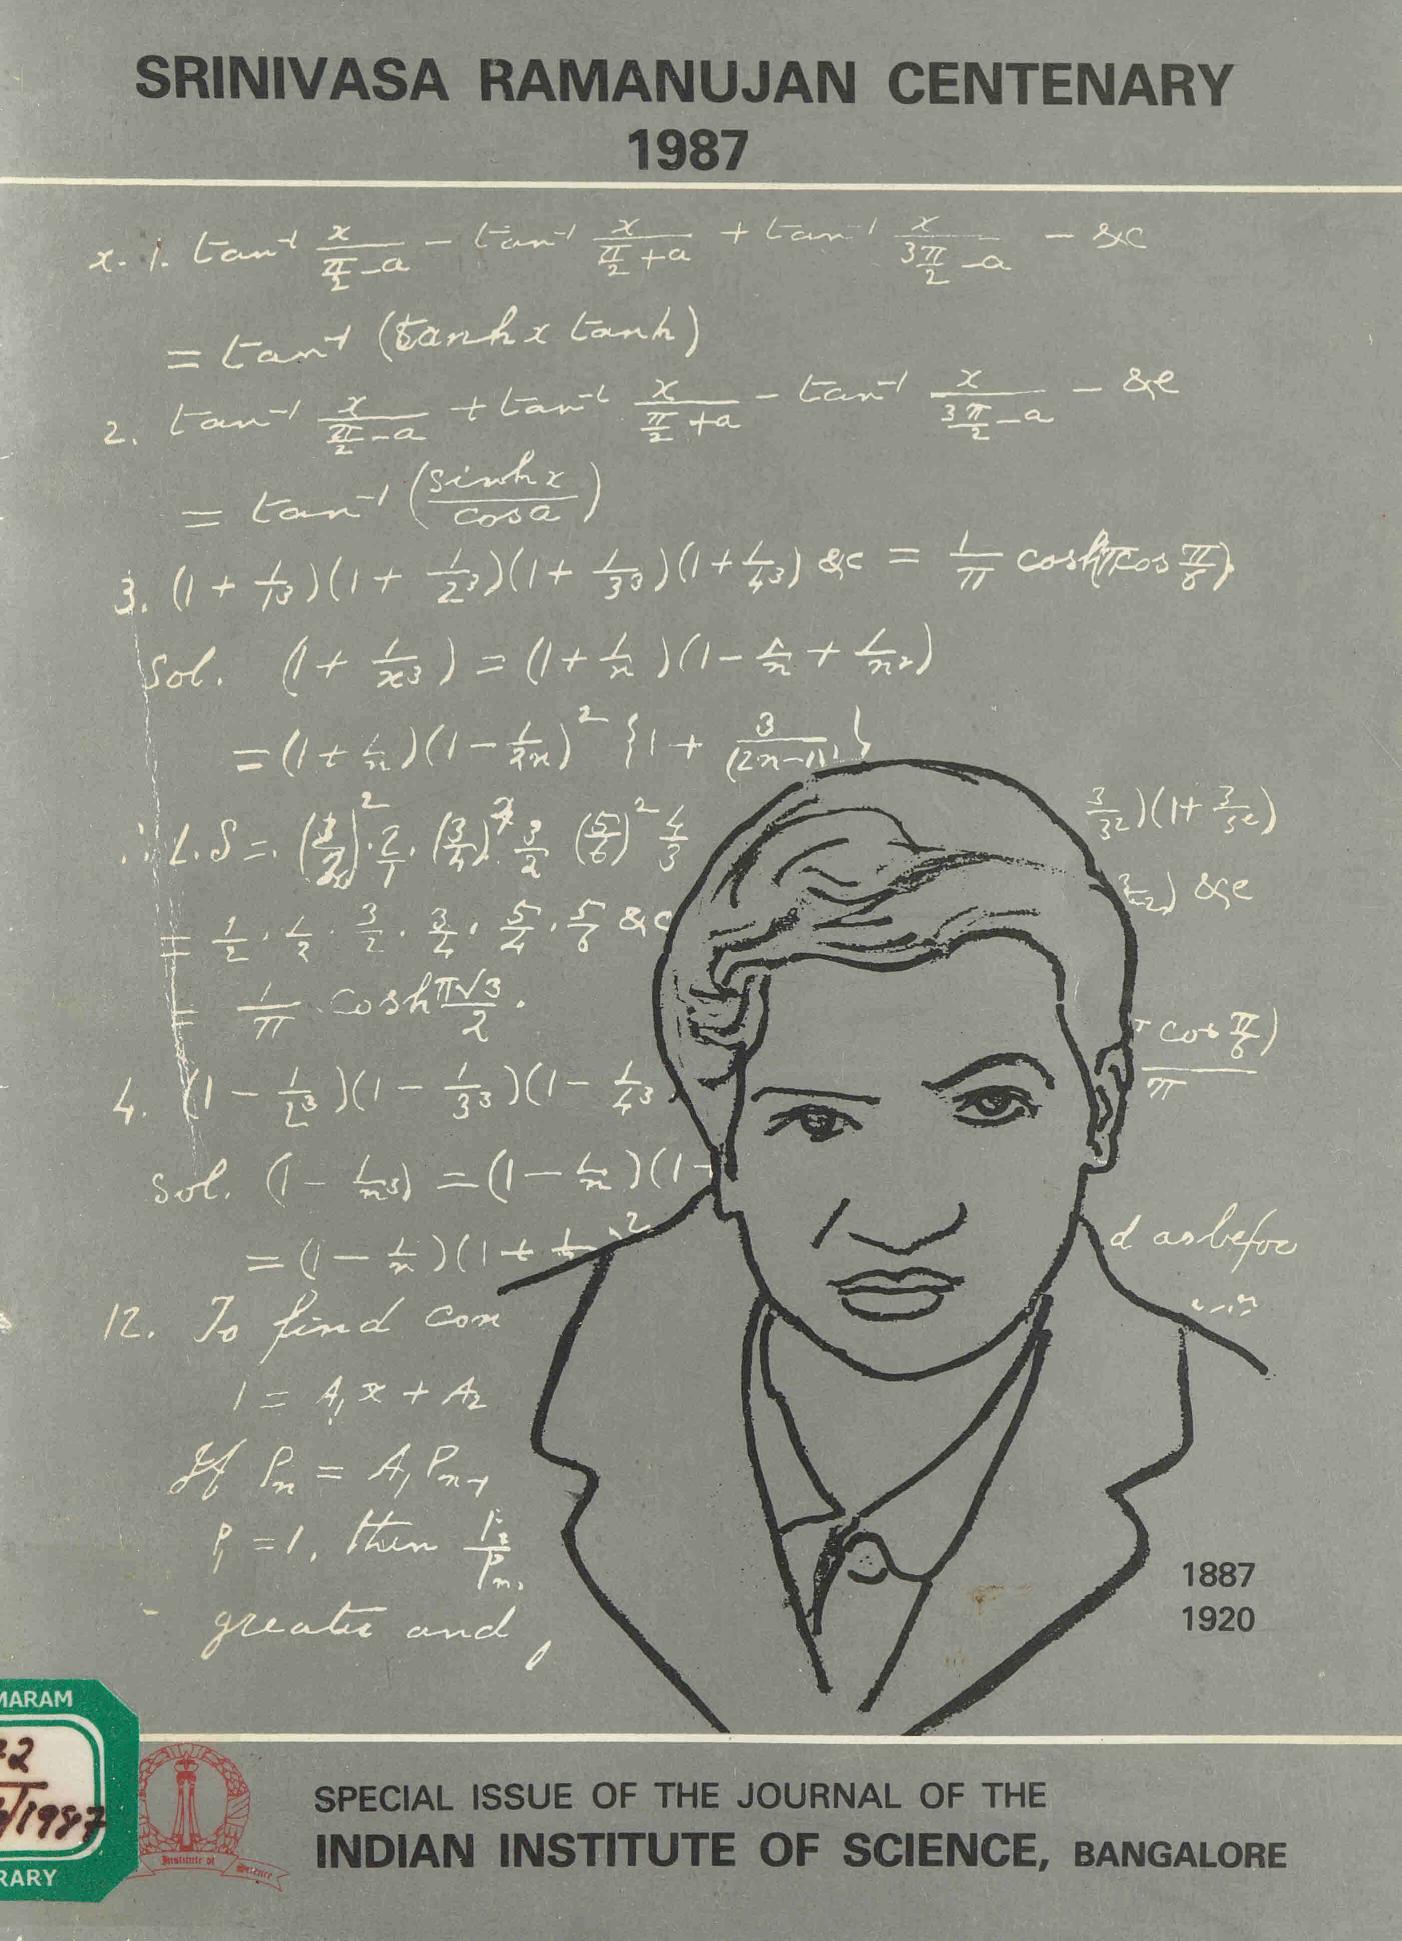 SRINIVASA RAMANUJAN CENTENARY
1987
x. 1. tan⁻¹ x/(π/2 − a) − tan⁻¹ x/(π/2 + a) + tan⁻¹ x/(3π/2 − a) − &c
= tan⁻¹ (tanh x tanh)
2. tan⁻¹ x/(π/2 − a) + tan⁻¹ x/(π/2 + a) − tan⁻¹ x/(3π/2 − a) − &c
= tan⁻¹ (sinh x/cos a)
3. (1 + 1/1³)(1 + 1/2³)(1 + 1/3³)(1 + 1/4³) &c = 1/π cosh(π cos π/6)
Sol. (1 + 1/n³) = (1 + 1/n)(1 − 1/n + 1/n²)
= (1 + 1/n)(1 − 1/2n)² {1 + 3/(2n−1)²}
∴ L.S = (1/2)² · 2/1 · (3/4)² · 3/2 · (5/6)² 4/3 3/3²)(1 + 3/5²)
= 1/2 · 1/2 · 3/2 · 3/4 · 5/4 · 5/6 &c &c
= 1/π cosh π√3/2 .
cos π/6)/π
4. (1 − 1/2³)(1 − 1/3³)(1 − 1/4³
Sol. (1 − 1/n³) = (1 − 1/n)(1 −
= (1 − 1/n)(1 + ² d as befor
12. To find con
1 = A₁x + A₂
If Pₙ = A₁Pₙ₋₁
P₁ = 1, then
greater and
1887
1920
MARAM
/1987
RARY
Institute of Science
SPECIAL ISSUE OF THE JOURNAL OF THE
INDIAN INSTITUTE OF SCIENCE, BANGALORE